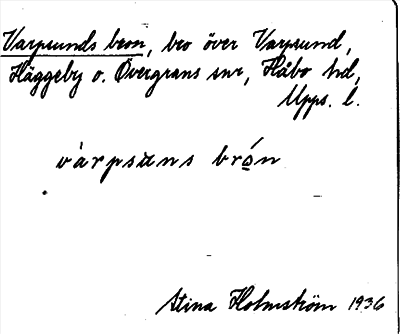 Varpsunds bron, bro över Varpsund,
Häggeby o. Övergrans snr, Håbo hd,
Upps. l.
vàrpsuns brón
Stina Holmström 1936